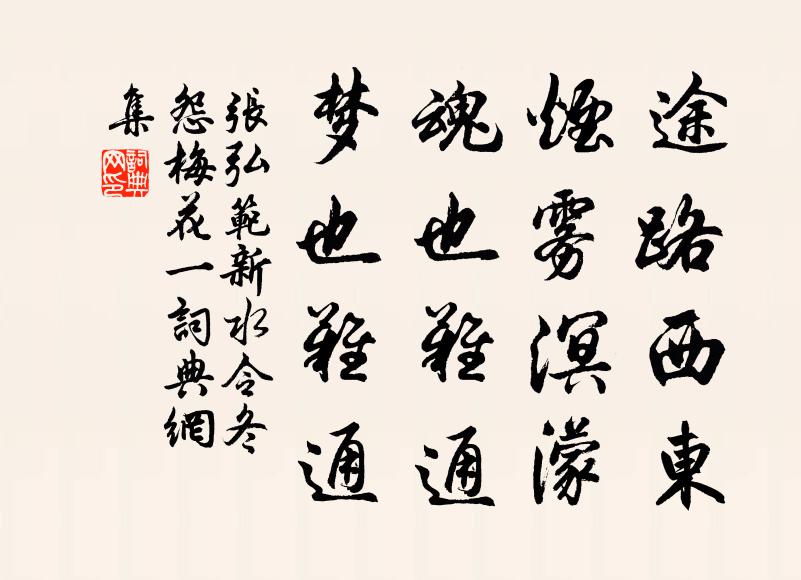 途路西東
煙雾溟濛
魂也難通
梦也難通
張弘範新水令冬
怨梅花一詞典網
集
詞典
网印